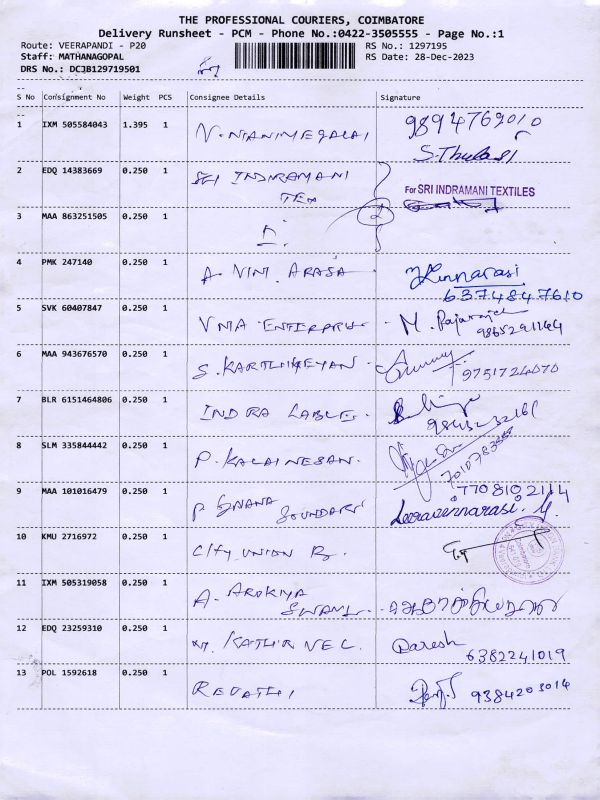 THE PROFESSIONAL COURIERS, COIMBATORE
Delivery Runsheet - PCM - Phone No.:0422-3505555 - Page No.:1
Route: VEERAPANDI - P20 RS No.: 1297195
Staff: MATHANAGOPAL RS Date: 28-Dec-2023
DRS No.: DC3B129719501
S No Consignment No Weight PCS Consignee Details Signature
1 IXM 505584043 1.395 1 9894769010
S.Thulasi
2 EDQ 14383669 0.250 1 SRI INDIRAMANI
TEX
For SRI INDRAMANI TEXTILES
3 MAA 863251505 0.250 1
4 PMK 247140 0.250 1 A. VINI ARASA
6374847610
5 SVK 60407847 0.250 1 VMA ENTERPRISE M. Rajarajan
9865291144
6 MAA 943676570 0.250 1 S. KARTHIKEYAN
9751724070
7 BLR 6151464806 0.250 1 INDRA LABLE
8 SLM 335844442 0.250 1 P. KALAINESAN.
9 MAA 101016479 0.250 1 P GNANA
SOUNDARI
7708102114
10 KMU 2716972 0.250 1 CITY UNION B.
11 IXM 505319058 0.250 1 A. AROKIYA
SWAMI
12 EDQ 23259310 0.250 1 M. KATHIR VEL
6382241019
13 POL 1592618 0.250 1 REVATHI 9384203014